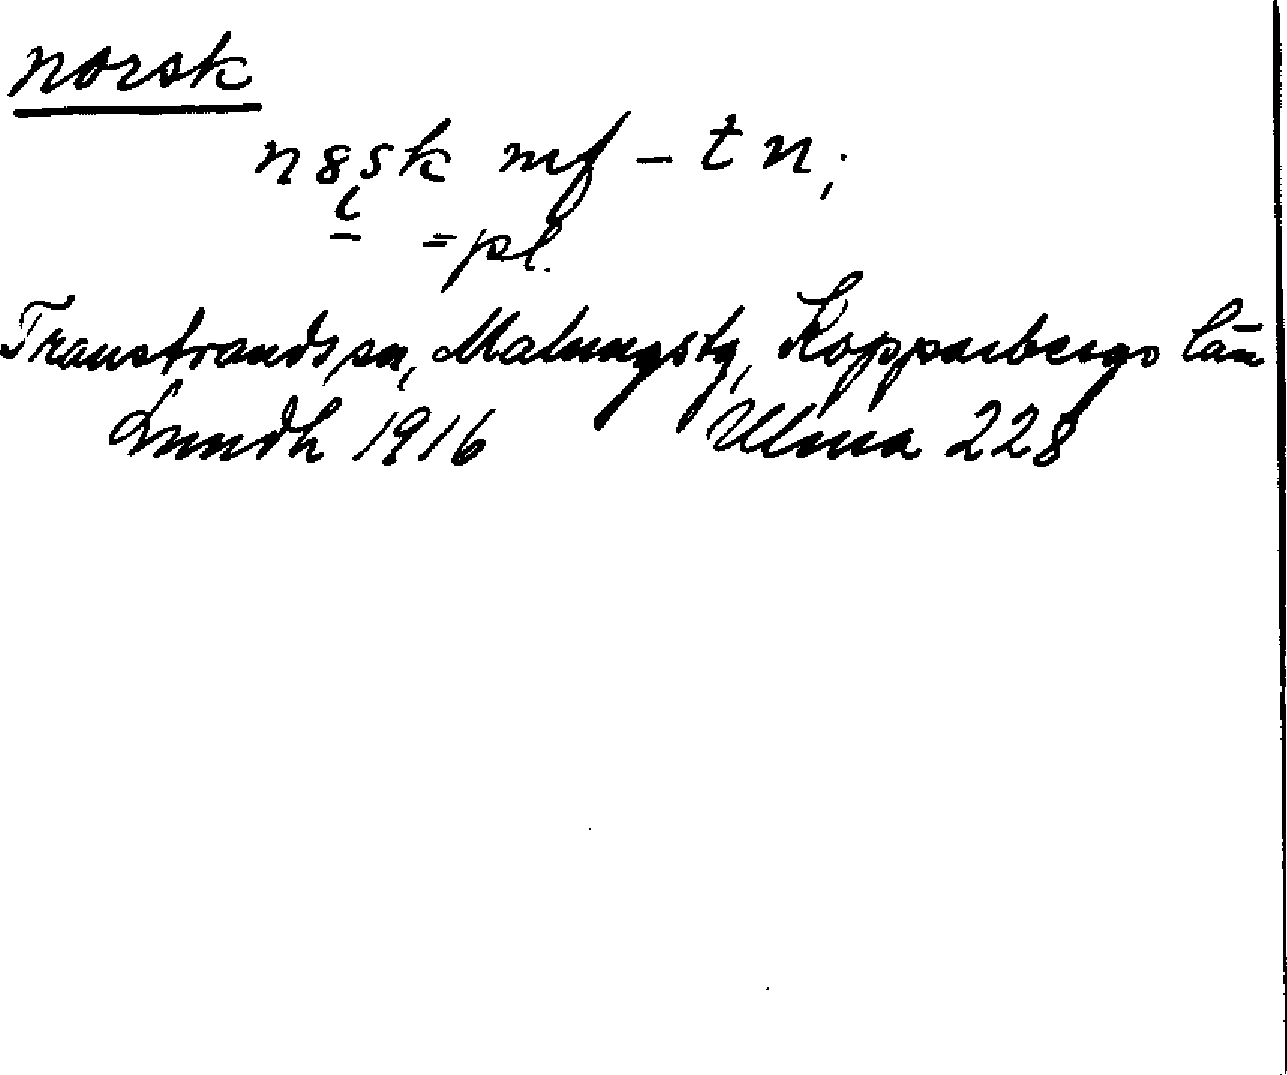 norsk
n8sk mf – t n;
= pl.
Transtrands sn, Malungs tg, Kopparbergs län
Lundh 1916 Ulma 228